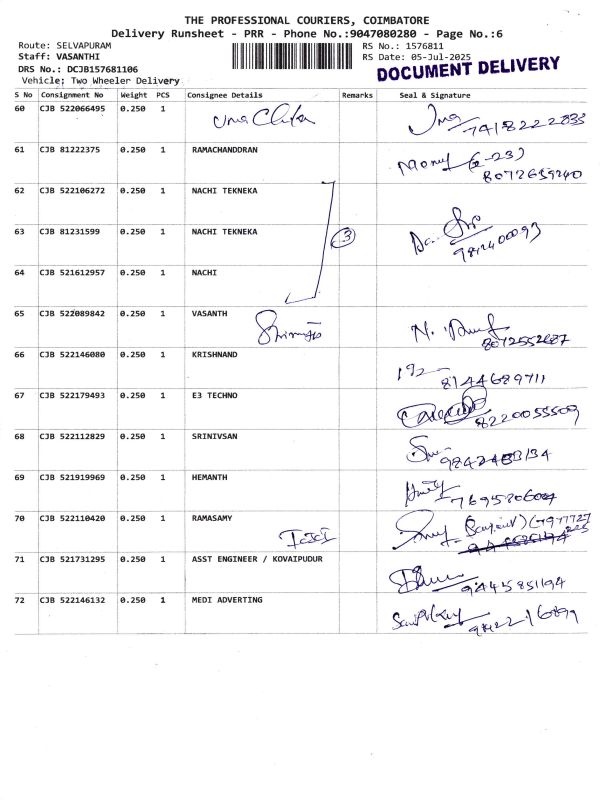 THE PROFESSIONAL COURIERS, COIMBATORE
Delivery Runsheet - PRR - Phone No.:9047080280 - Page No.:6
Route: SELVAPURAM
RS No.: 1576811
Staff: VASANTHI
RS Date: 05-Jul-2025
DRS No.: DCJB157681106
DOCUMENT DELIVERY
Vehicle; Two Wheeler Delivery
S No Consignment No Weight PCS Consignee Details Remarks Seal & Signature
60 CJB 522066495 0.250 1 Uma
Uma 7418222833
61 CJB 81222375 0.250 1 RAMACHANDDRAN
8072659240
62 CJB 522106272 0.250 1 NACHI TEKNEKA
63 CJB 81231599 0.250 1 NACHI TEKNEKA 3
64 CJB 521612957 0.250 1 NACHI
65 CJB 522089842 0.250 1 VASANTH
8072552687
66 CJB 522146080 0.250 1 KRISHNAND
8144689711
67 CJB 522179493 0.250 1 E3 TECHNO
8220055509
68 CJB 522112829 0.250 1 SRINIVSAN
69 CJB 521919969 0.250 1 HEMANTH
70 CJB 522110420 0.250 1 RAMASAMY
71 CJB 521731295 0.250 1 ASST ENGINEER / KOVAIPUDUR
9445851194
72 CJB 522146132 0.250 1 MEDI ADVERTING